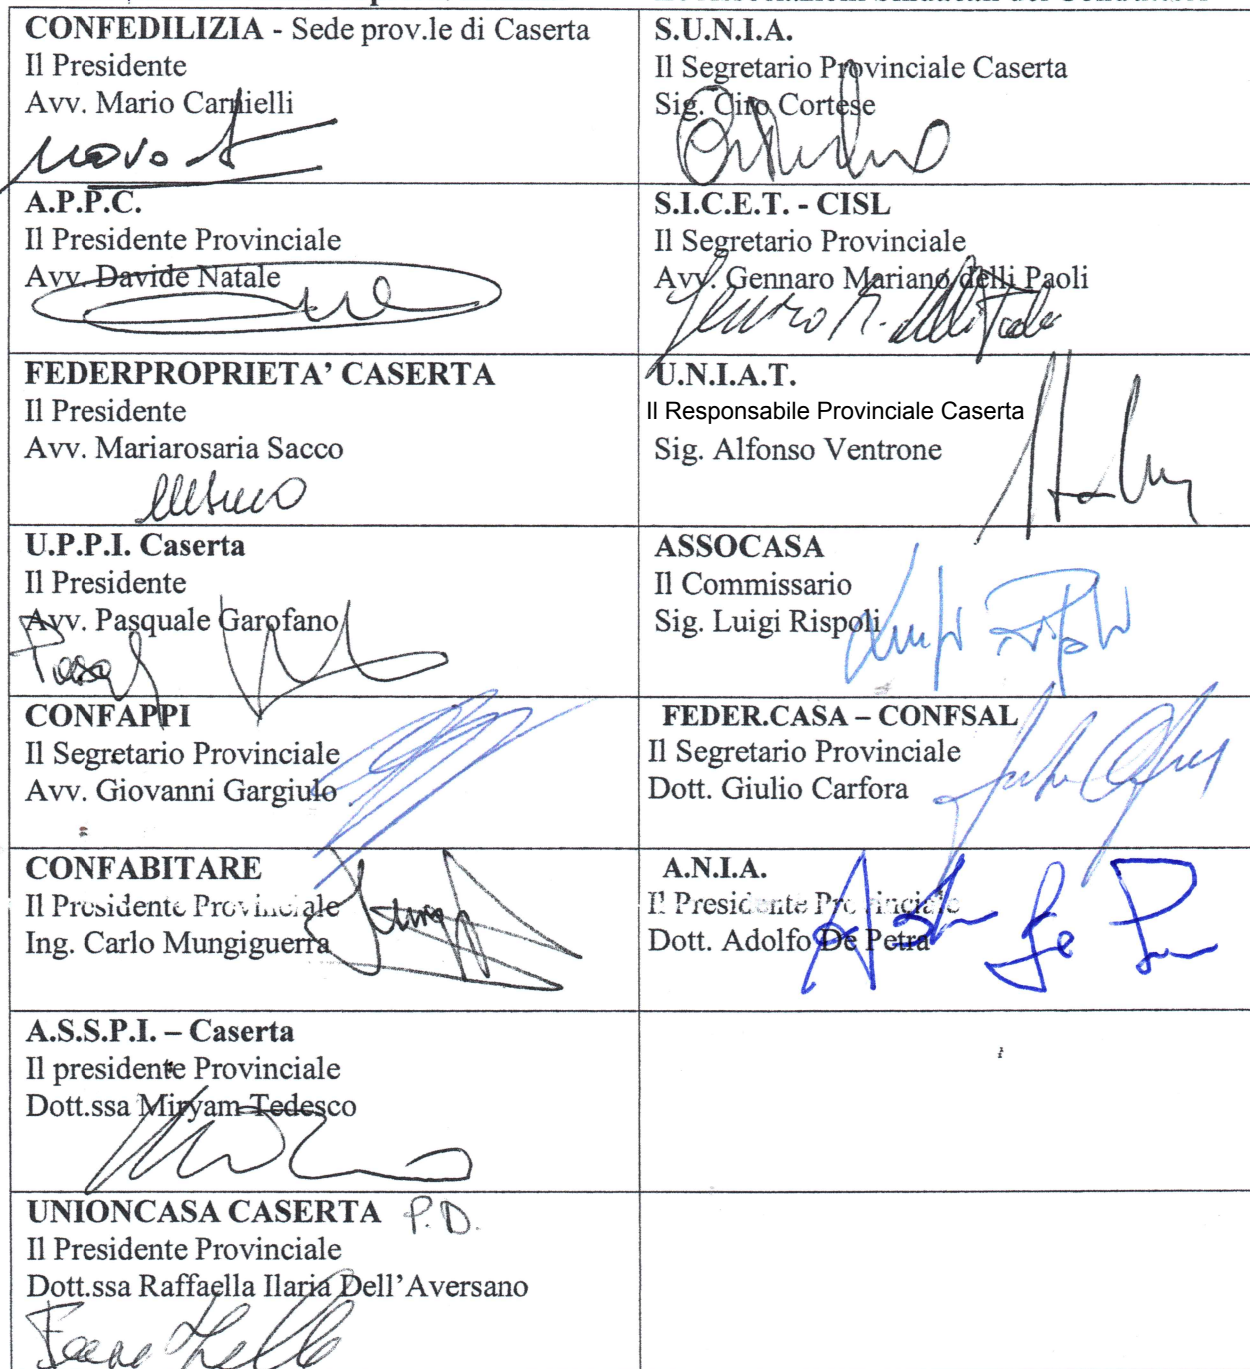 CONFEDILIZIA - Sede prov.le di Caserta
Il Presidente
Avv. Mario Carnielli
S.U.N.I.A.
Il Segretario Provinciale Caserta
Sig. Ciro Cortese
A.P.P.C.
Il Presidente Provinciale
Avv. Davide Natale
S.I.C.E.T. - CISL
Il Segretario Provinciale
Avv. Gennaro Mariano delli Paoli
FEDERPROPRIETA’ CASERTA
Il Presidente
Avv. Mariarosaria Sacco
U.N.I.A.T.
Il Responsabile Provinciale Caserta
Sig. Alfonso Ventrone
U.P.P.I. Caserta
Il Presidente
Avv. Pasquale Garofano
ASSOCASA
Il Commissario
Sig. Luigi Rispoli
CONFAPPI
Il Segretario Provinciale
Avv. Giovanni Gargiulo
FEDER.CASA – CONFSAL
Il Segretario Provinciale
Dott. Giulio Carfora
CONFABITARE
Il Presidente Provinciale
Ing. Carlo Mungiguerra
A.N.I.A.
Il Presidente Provinciale
Dott. Adolfo De Petra
A.S.S.P.I. – Caserta
Il presidente Provinciale
Dott.ssa Miryam Tedesco
UNIONCASA CASERTA P.D.
Il Presidente Provinciale
Dott.ssa Raffaella Ilaria Dell’Aversano